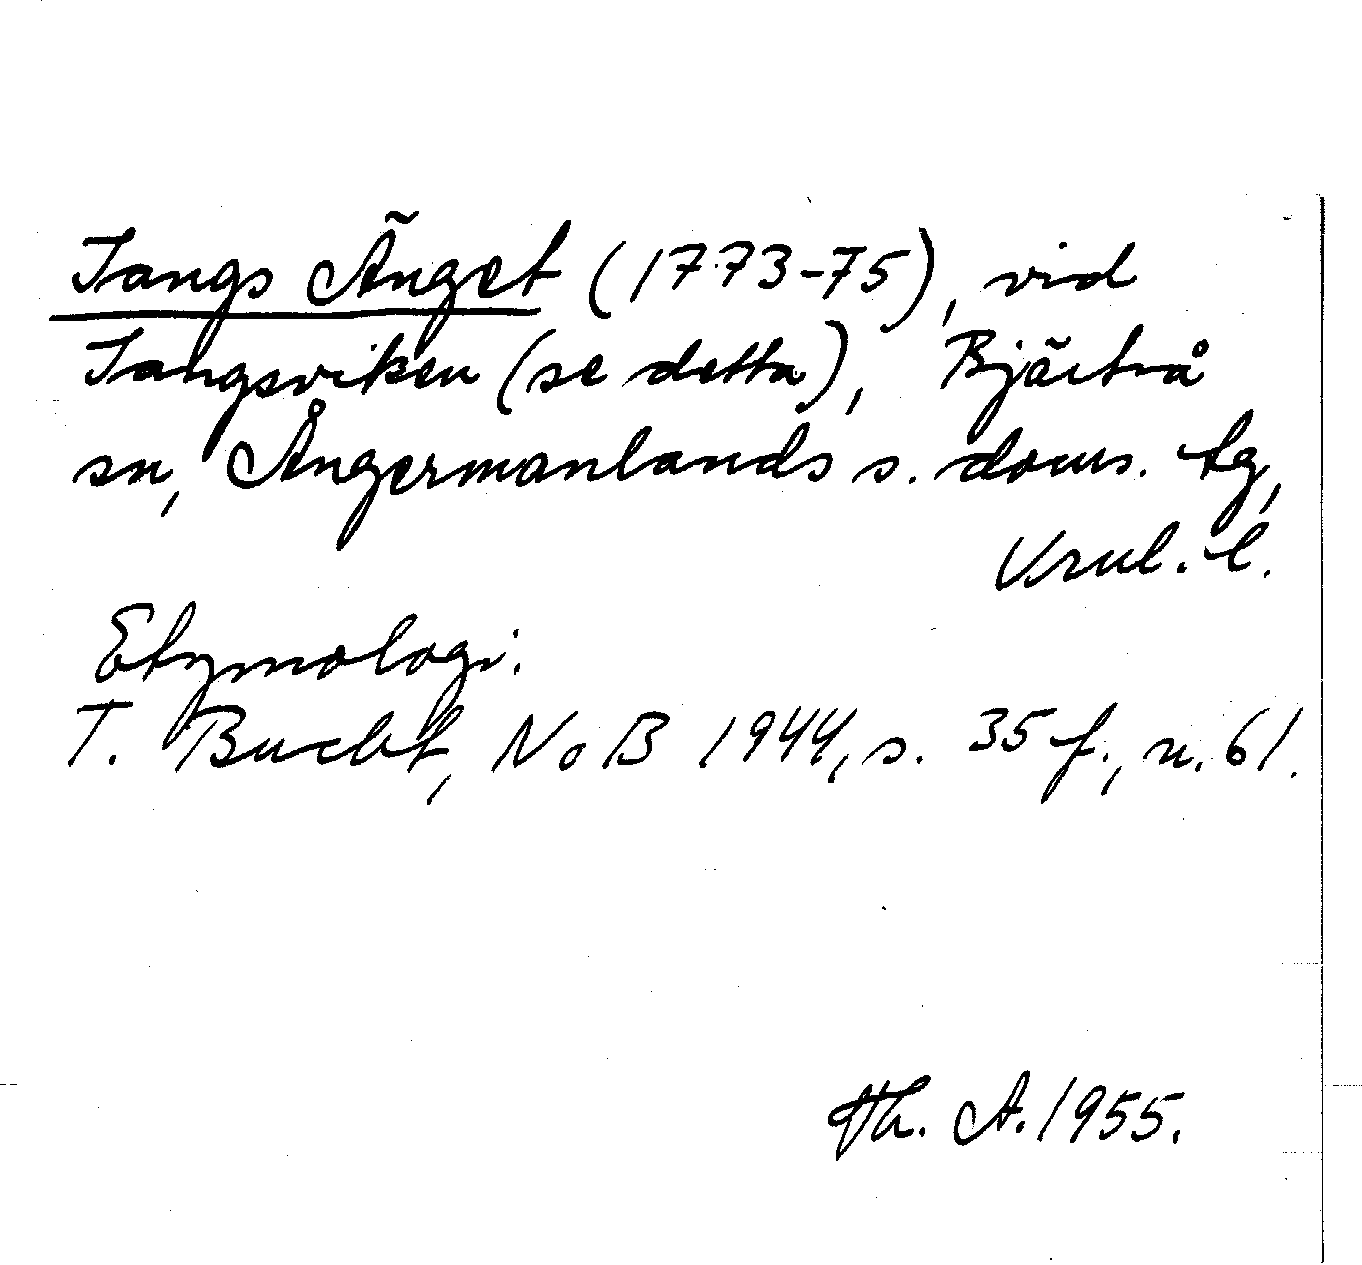 Tangs Änget (1773-75), vid
Tangsviken (se detta), Bjärtrå
sn, Ångermanlands s. doms. tg,
Vrnl. l.
Etymologi.
T. Bucht, NoB 1944, s. 35 f., n. 61.
Th. A. 1955.